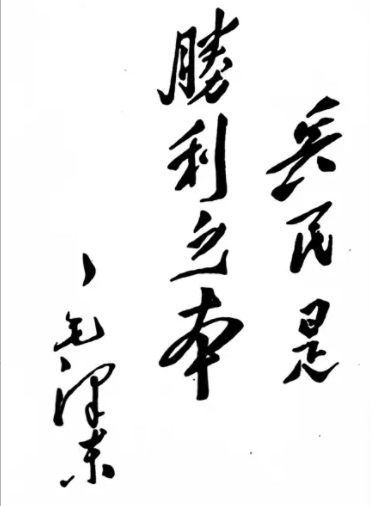 兵民是
勝利之本
毛澤東